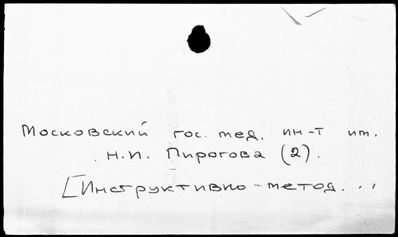 Московский гос. мед. ин-т им.
Н.И. Пирогова (2).
[Инструктивно-метод...